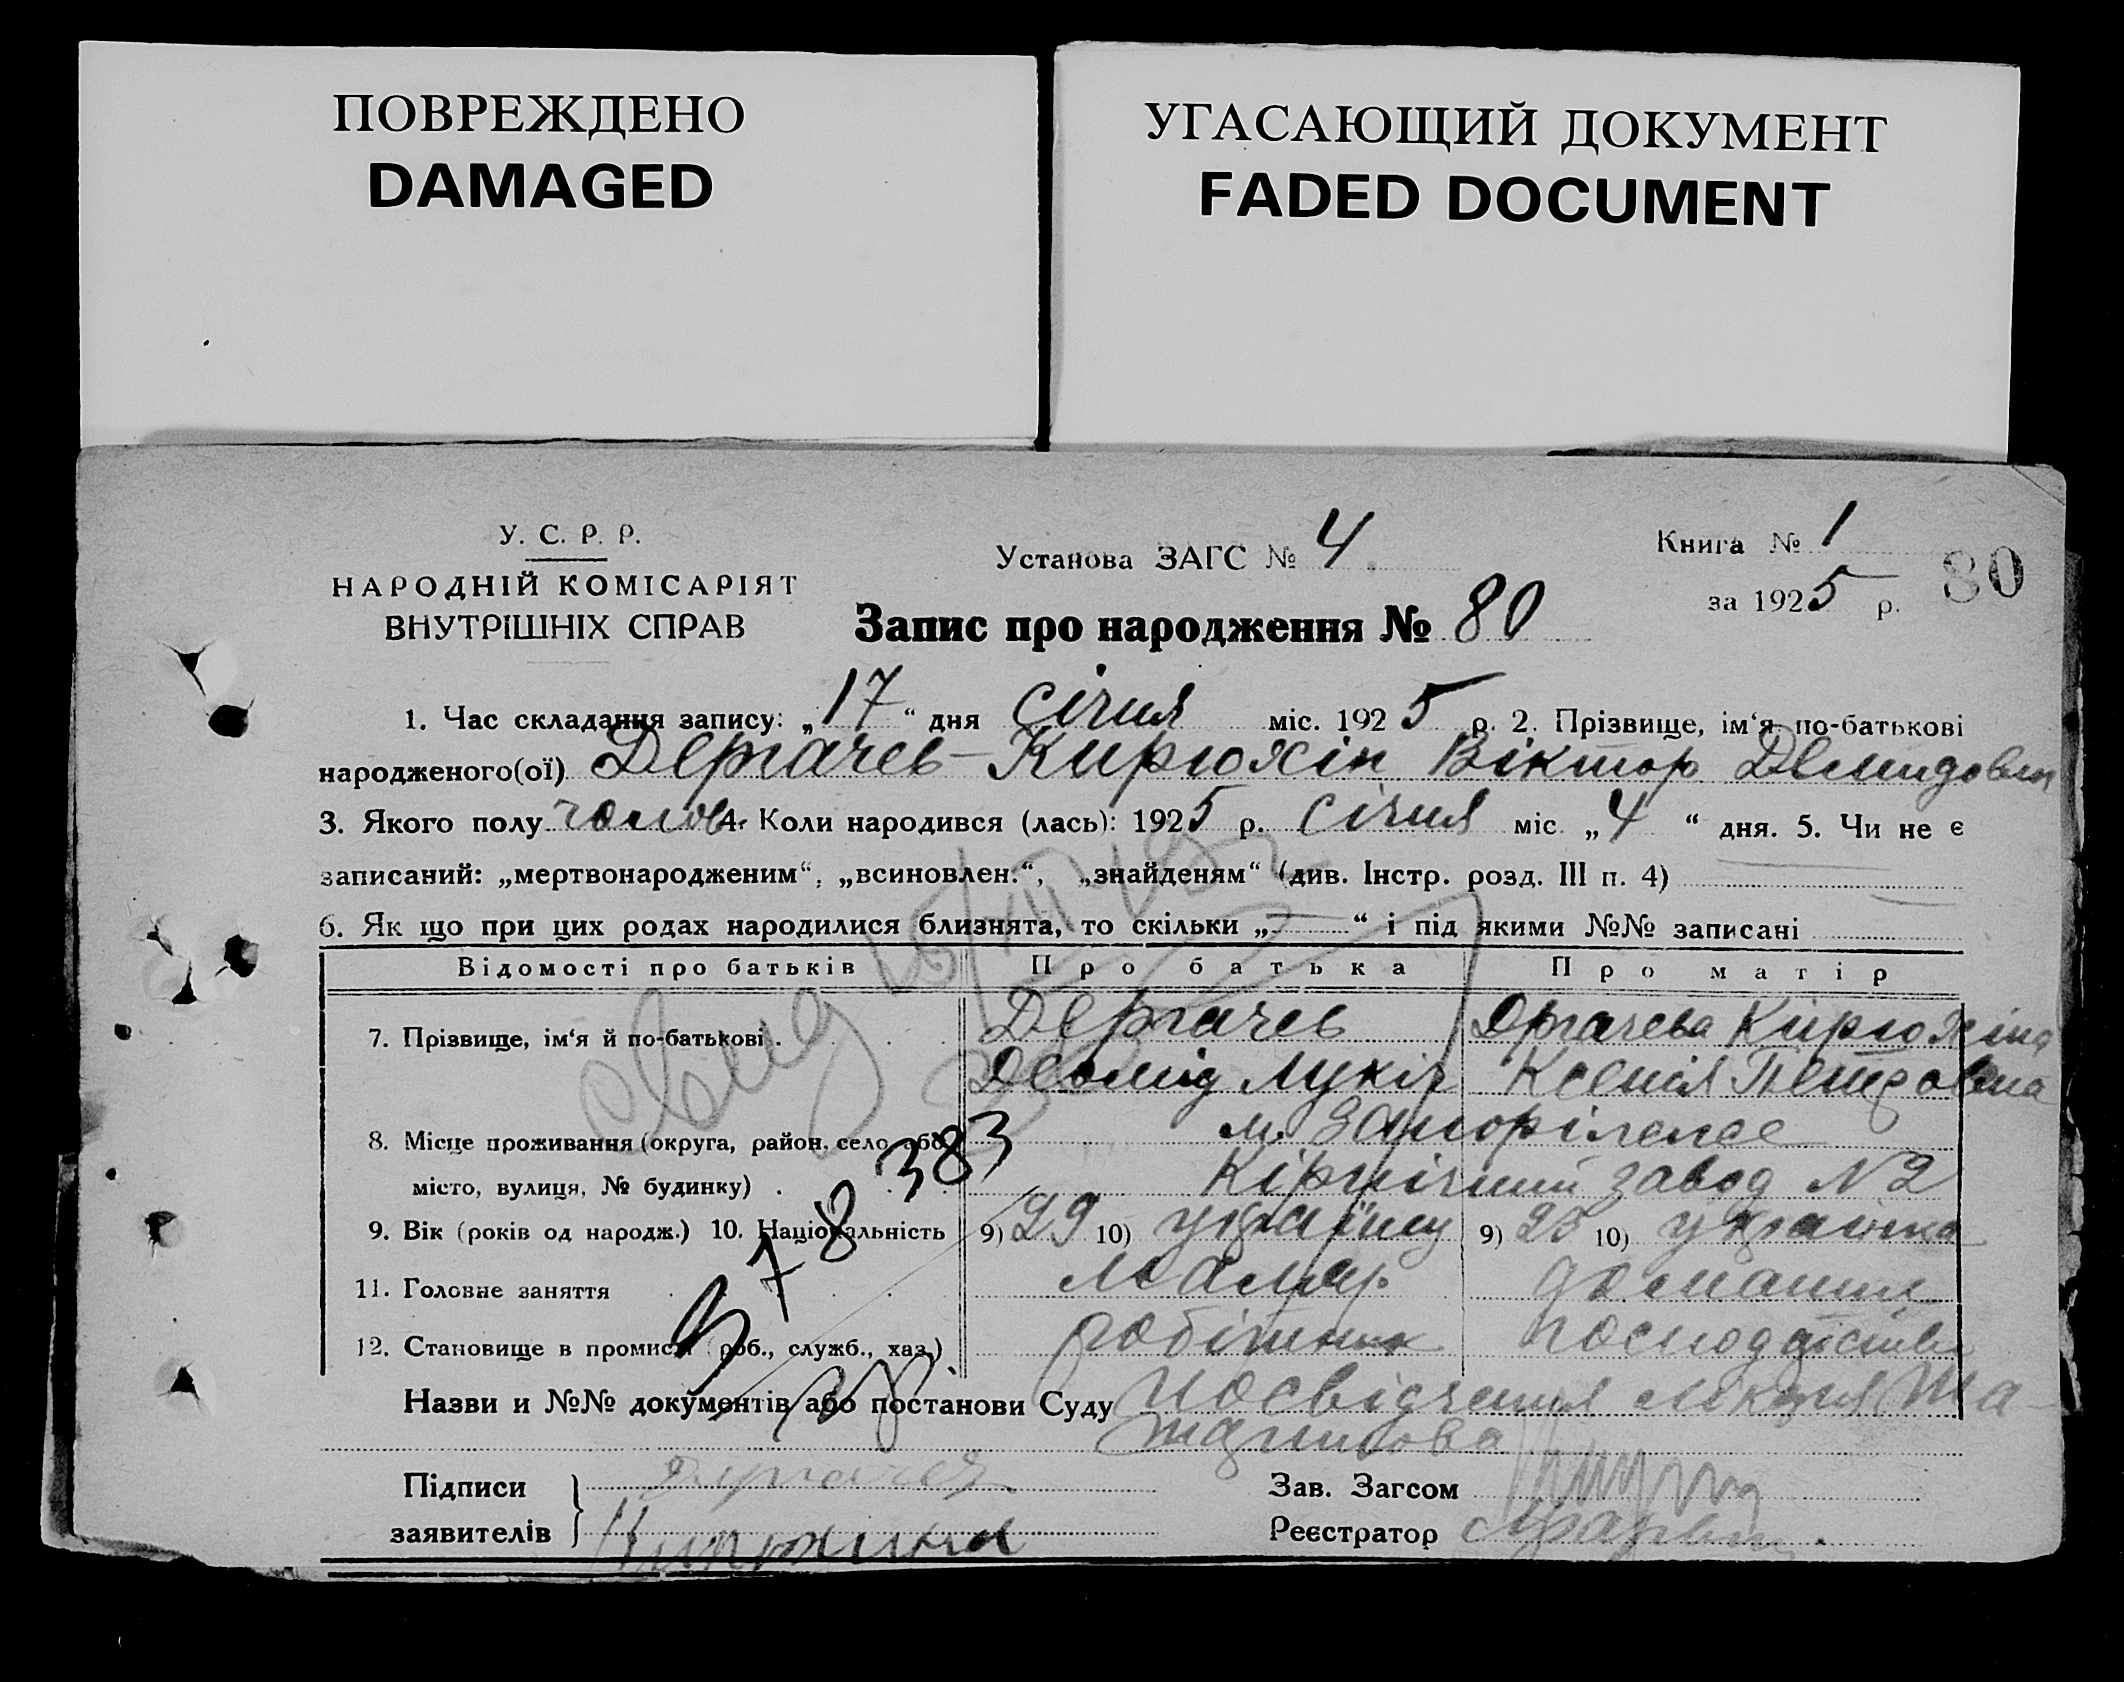 ПОВРЕЖДЕНО
DAMAGED
УГАСАЮЩИЙ ДОКУМЕНТ
FADED DOCUMENT
У. С. Р. Р.
НАРОДНІЙ КОМІСАРІЯТ
ВНУТРІШНІХ СПРАВ
Установа ЗАГС № 4
Запис про народження № 80
Книга № 1
за 1925 р.
80
1. Час складання запису: „17“ дня січня міс. 1925 р. 2. Прізвище, ім‘я, по-батькові
народженого(ої) Дергачев-Кирюхін Віктор Демидович
3. Якого полу чолов. 4. Коли народився (лась): 1925 р. січня міс „4“ дня. 5. Чи не є
записаний: „мертвонародженим“, „всиновлен.“, „знайденям“ (див. Інстр. розд. III п. 4)
6. Як що при цих родах народилися близнята, то скільки „—“ і під якими №№ записані
Відомості про батьків Про батька Про матір
7. Прізвище, ім‘я й по-батькові. Дергачев Дргачева Кирюхіна
Демид Лукіч Ксенія Петровна
8. Місце проживання (округа, район, село або м. Запоріжжє
місто, вулиця, № будинку) Кірпічний завод N2
9. Вік (років од народж.) 10. Національність 9) 29 10) українц 9) 25 10) українка
11. Головне заняття Маляр. домашня
12. Становище в промисл (роб., служб., хаз.) робітник господарства
Назви и №№ документів або постанови Суду Посвідчення лікаря
378383
Підписи Дергачев
заявителів Кирюхина
Зав. Загсом
Реєстратор